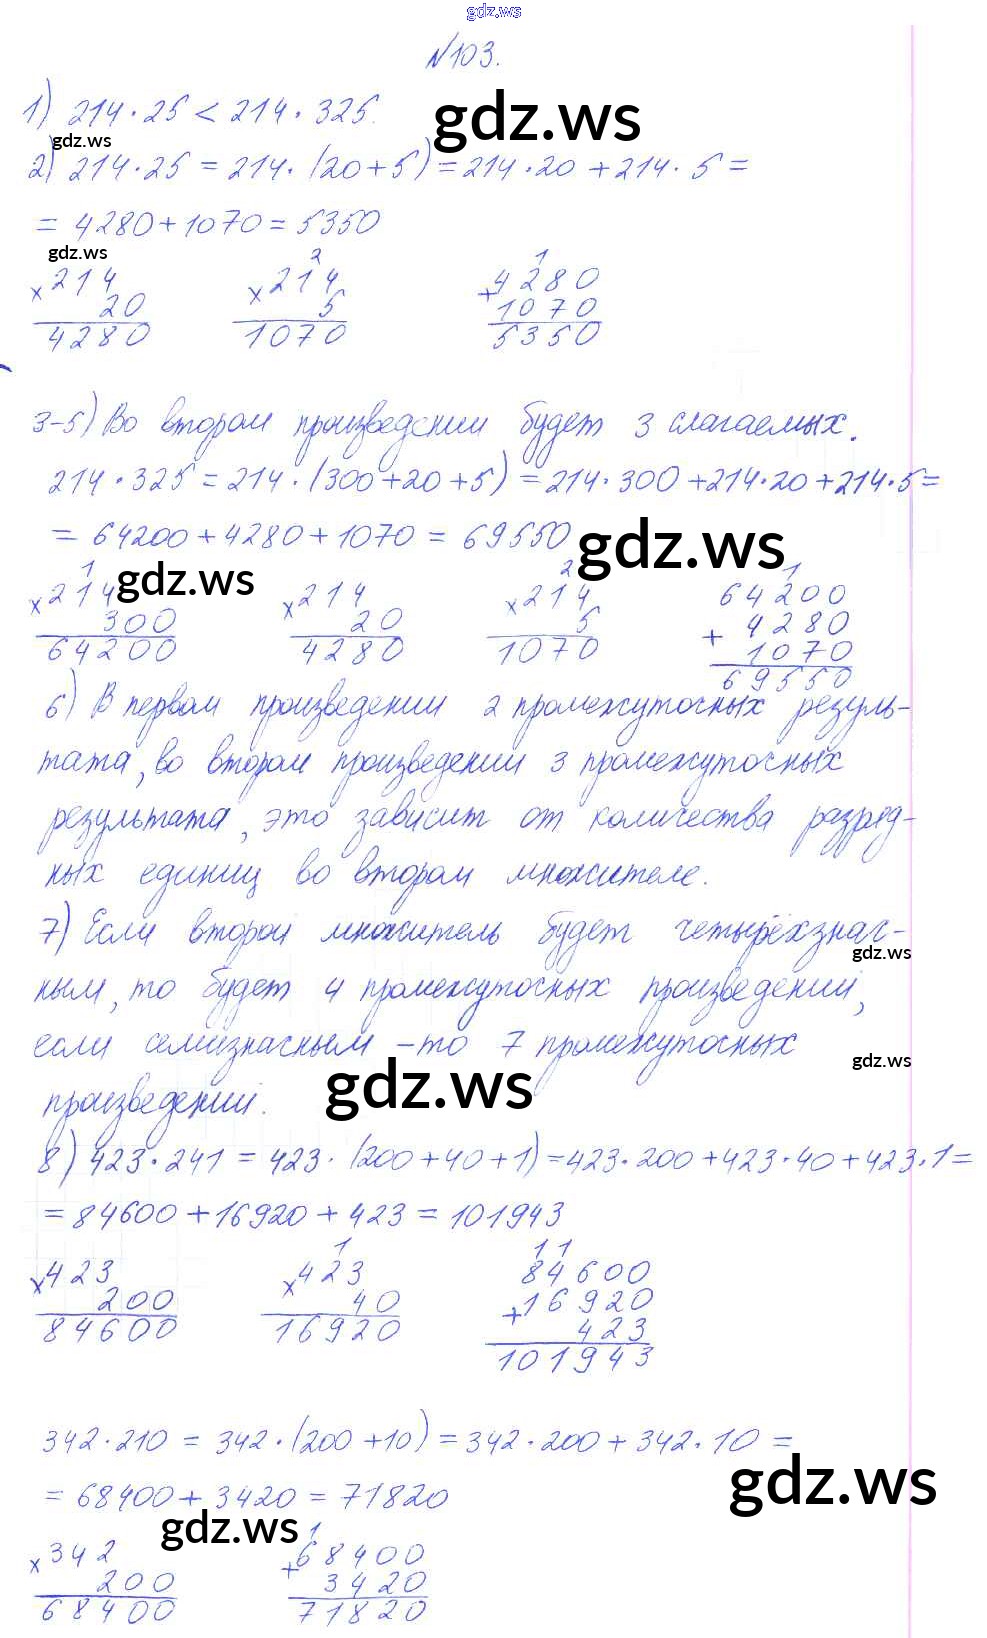 gdz.ws
№103.
1) 214·25 < 214·325.
gdz.ws
gdz.ws
2) 214·25 = 214·(20+5) = 214·20 + 214·5 =
= 4280 + 1070 = 5350
gdz.ws
2 1
×214 ×214 4280
20 5 +1070
4280 1070 5350
3-5) Во втором произведении будет 3 слагаемых.
214·325 = 214·(300+20+5) = 214·300 + 214·20 + 214·5 =
= 64200 + 4280 + 1070 = 69550
gdz.ws
gdz.ws
1 2 1
×214 ×214 ×214 64200
300 20 5 4280
64200 4280 1070 +1070
69550
6) В первом произведении 2 промежуточных резуль-
тата, во втором произведении 3 промежуточных
результата, это зависит от количества разряд-
ных единиц во втором множителе.
7) Если второй множитель будет четырёхзнач-
gdz.ws
ным, то будет 4 промежуточных произведений,
если семизначным - то 7 промежуточных
gdz.ws
gdz.ws
произведений.
8) 423·241 = 423·(200+40+1) = 423·200 + 423·40 + 423·1 =
= 84600 + 16920 + 423 = 101943
1 11
×423 ×423 84600
200 40 +16920
84600 16920 423
101943
342·210 = 342·(200+10) = 342·200 + 342·10 =
gdz.ws
= 68400 + 3420 = 71820
gdz.ws
1
×342 +68400
200 3420
68400 71820